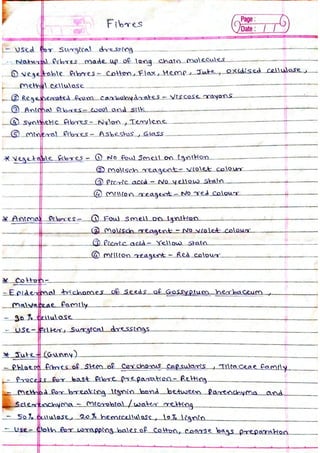 Fibres
Page:
Date: / /
- Used for Surgical dressing
- Natural fibres made up of long chain molecules
① Vegetable fibres - Cotton, Flax, Hemp, Jute, oxidised cellulose,
Methyl cellulose
② Regenerated from carbohydrates - Viscose rayons
③ Animal fibres - wool and silk
④ Synthetic fibres - Nylon, Terylene
⑤ Mineral fibres - Asbestus, Glass
* Vegetable fibres - ① No Foul Smell on Ignition
② Molisch reagent - violet colour
③ Picric acid - No yellow stain
④ Million reagent - No red colour
* Animal fibres - ① Foul smell on Ignition
② Molisch reagent - No violet colour
③ Picric acid - Yellow stain
④ Millon reagent - Red colour
* Cotton -
- Epidermal trichomes of seeds of Gossypium herbaceum,
Malvaceae family
- 90 % cellulose
- Use - Filter, Surgical dressings
* Jute - (Gunny)
- Phloem fibres of stem of Corchorus capsularis, Tiliaceae family
- Process for bast fibre preparation - Retting
- Method for breaking lignin bond between Parenchyma and
Sclerenchyma - Microbial / water retting
- 50% cellulose, 20% hemicellulose, 10% lignin
- Use - Cloth for wrapping bales of cotton, coarse bags preparation